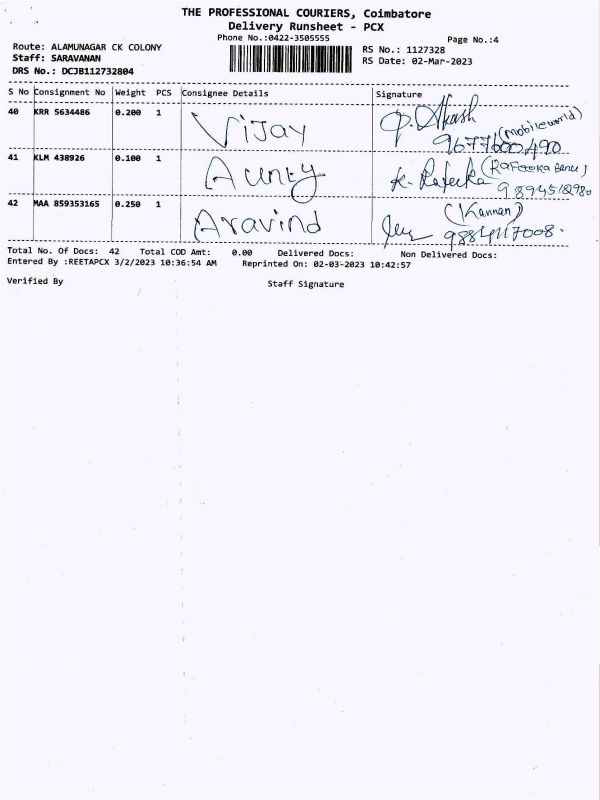 THE PROFESSIONAL COURIERS, Coimbatore
Delivery Runsheet - PCX
Phone No.:0422-3505555
Page No.:4
Route: ALAMUNAGAR CK COLONY
RS No.: 1127328
Staff: SARAVANAN
RS Date: 02-Mar-2023
DRS No.: DCJB112732804
S No Consignment No Weight PCS Consignee Details Signature
40 KRR 5634486 0.200 1 Vijay P. Akash (Mobile world)
41 KLM 438926 0.100 1 Aunty K. Rafeeka
42 MAA 859353165 0.250 1 Aravind (Kannan)
Total No. Of Docs: 42 Total COD Amt: 0.00 Delivered Docs: Non Delivered Docs:
Entered By :REETAPCX 3/2/2023 10:36:54 AM Reprinted On: 02-03-2023 10:42:57
Verified By Staff Signature